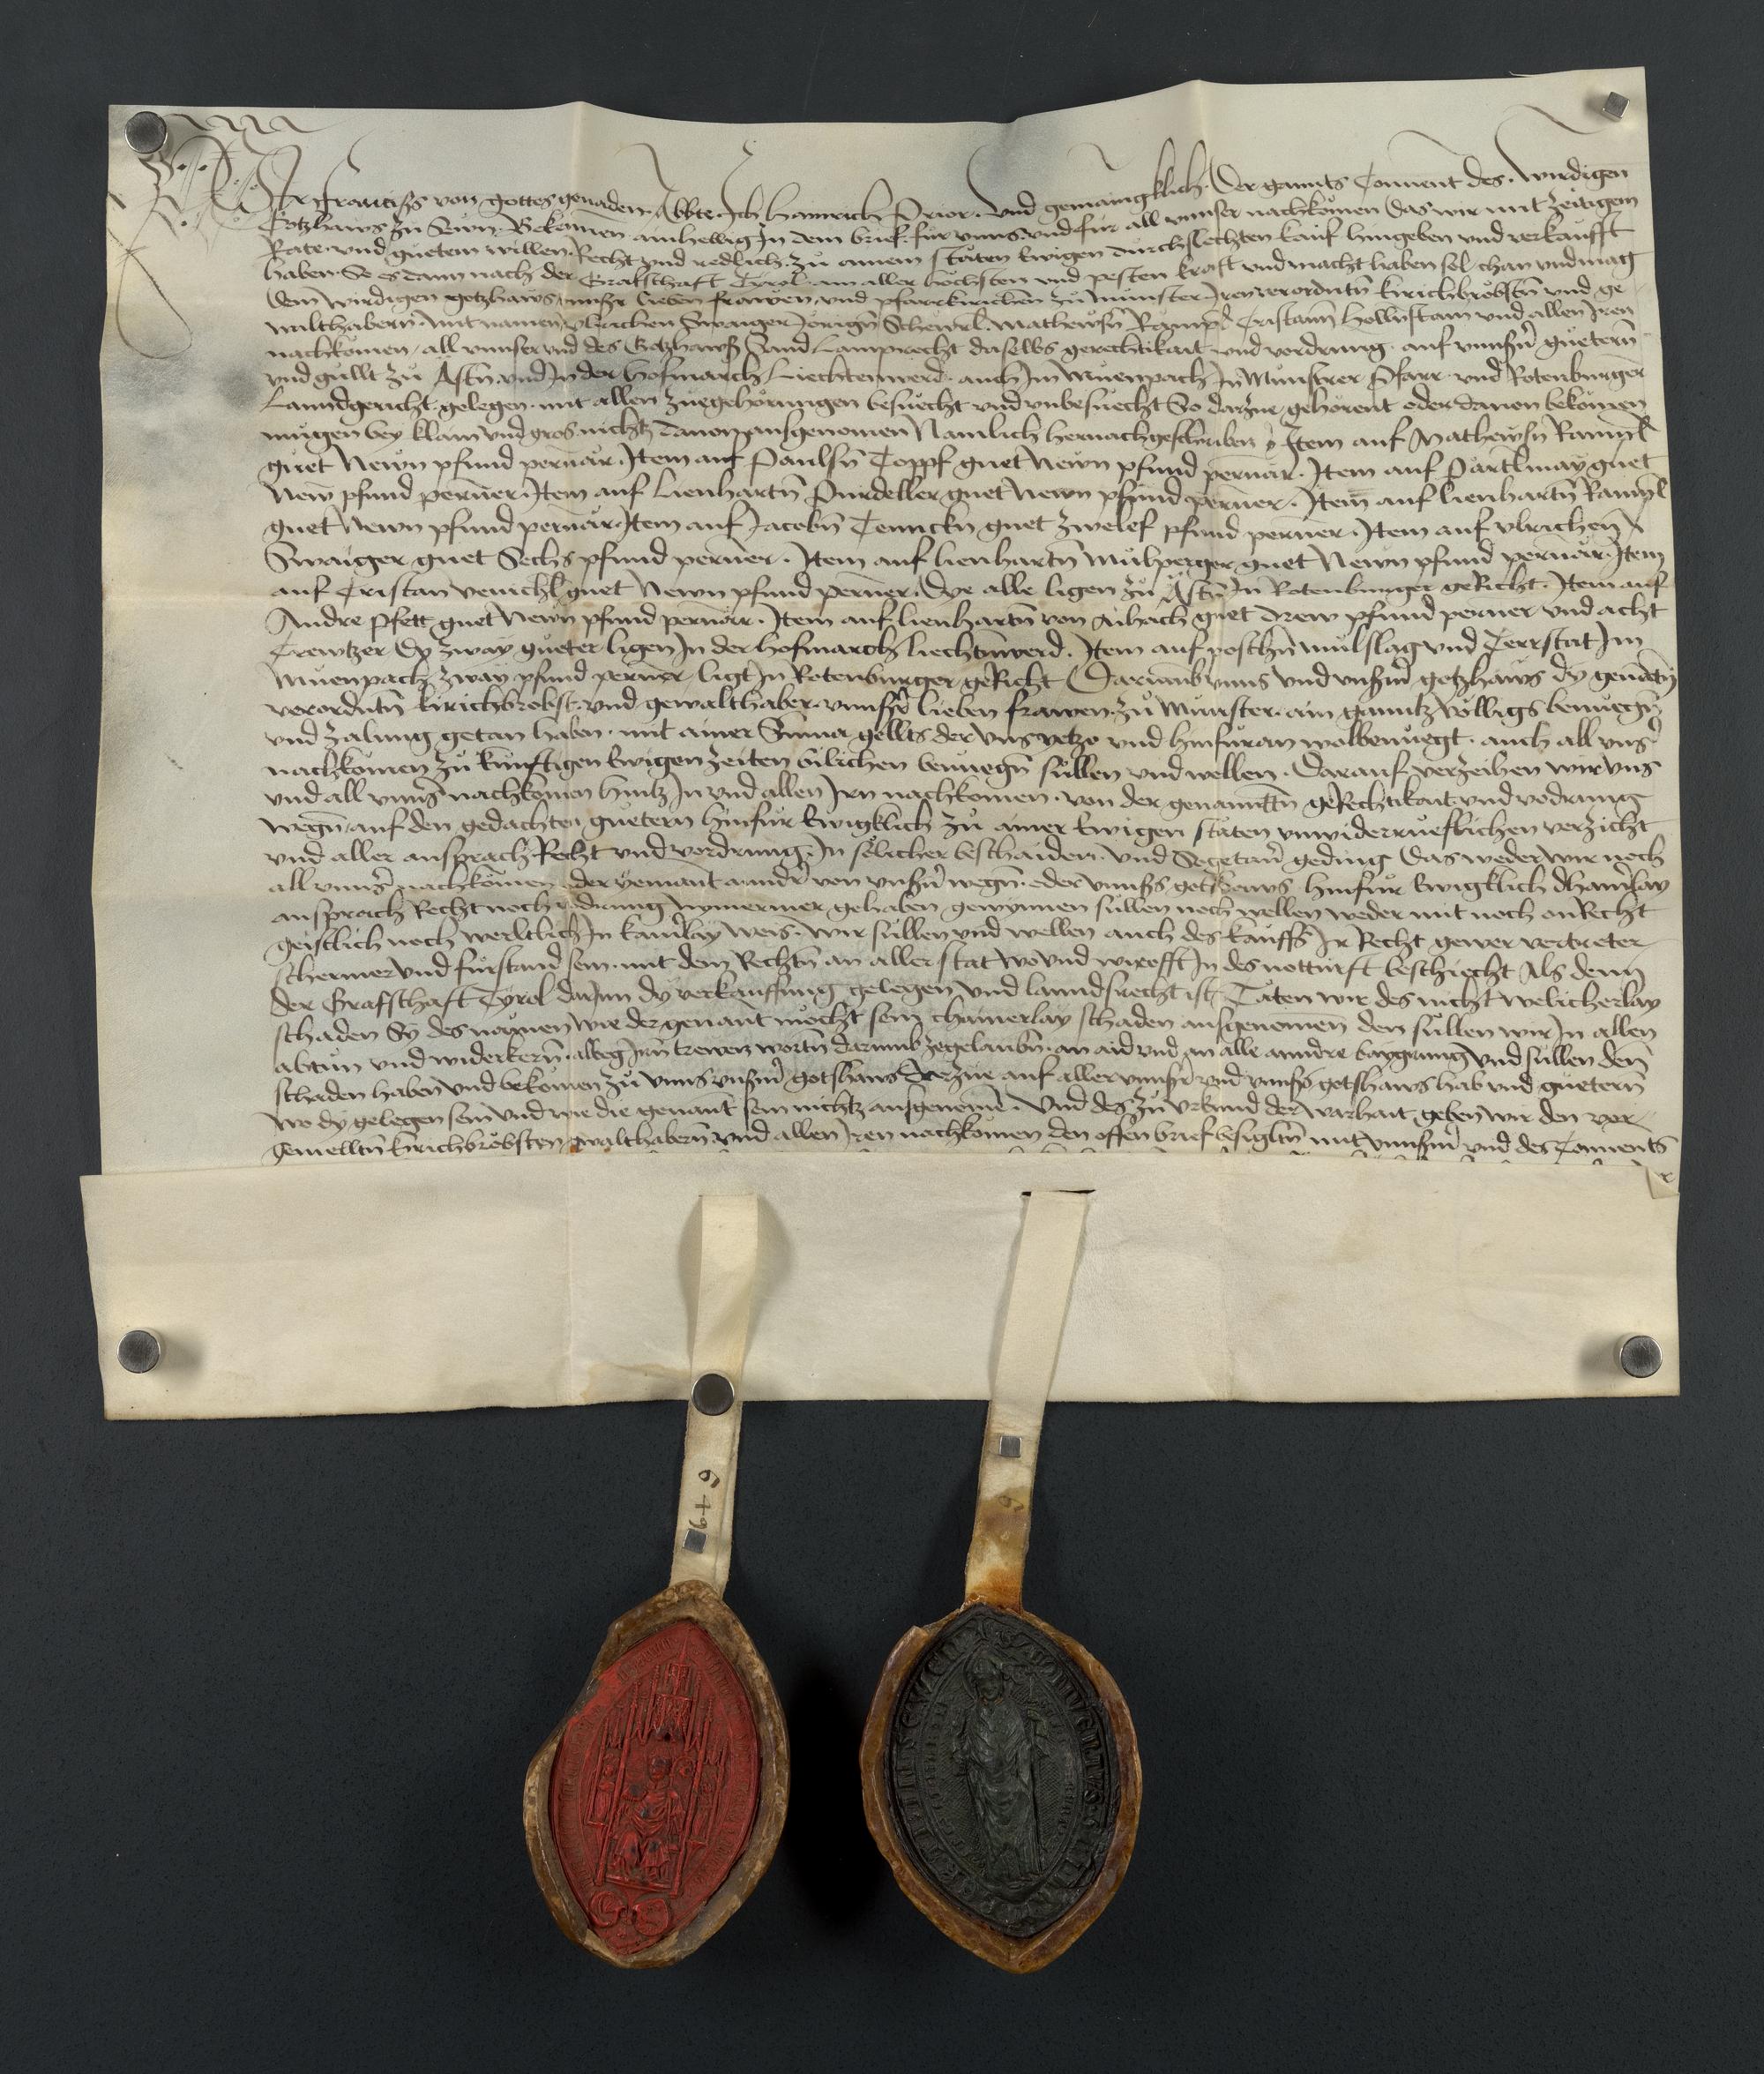 Wir Franciss von gottes genaden Abbte. Ich Hainrich Prior. vnd gemaingklich. Der gannts Conuent des. wirdigen
Gotzhaws zu Sewn. Bekennen ainhellig In dem brief. für vnns. vnd für all vnnser nachkömen Das wir mit zeitigem
Rate. vnd guetem willen. Recht vnd redlich. zu ainem stäten Ewigen durchslechten kauf hingeben vnd verkaufft
haben. So es dann nach der Grafschaft Tyrol. am aller höchsten vnd pesten kraft vnd macht haben sol chan vnd mag
Dem wirdigen gotzhaws vnnsr lieben frawen. vnd pfarrkirichen zu Munster. Iren verordntn kirichbröbstn vnd ge-
walthabern. mit namen vlrichen Swaiger Jörign Schewrl. Mathewsn Rampl Cristann Hollnstain vnd allen Iren
nachkömen. all vnnser vnd des Gotzhaws Sand Lamprecht daselbs gerechtikait vnd vordrung. auf vnnsrn guetern
vnd gullt zu Ästn. vnd In der Hofmarch Liechtenwerd. auch Im Muenpach In Munstrer Pfarr. vnd Rotenburger
Lanndgericht. gelegen. mit allen zuegehörungen besuecht vnd vnbesuecht So darzue gehorent oder dauon bekömen
mugen bey klain vnd gros nichtz dauon ausgenomen Namlich hernachgeschriben Item auf Mathewsn Rampl
guet Newn pfund pernär. Item auf Paulsn Toppf guet Newn pfund pernär. Item auf Pärtlmay guet
New pfund perner. Item auf Lienhartn Purdeller guet Newn pfund perner. Item auf lienhartn Rampl
guet Newn pfund pernär. Item auf Jacobn Tennckn guet zwelef pfund perner. Item auf vlrichen
Swaiger guet Sechs pfund perner. Item auf lienhartn Mulperger guet Newn pfund pernär. Item
auf Cristan venichl guet Newn pfund perner. Dye alle ligen zu Ästn In Rotenburger geRicht. Item auf
Andre Pfett guet Newn pfund pernär. Item auf lienhartn von Aibach guet drew pfund perner vnd acht
Crewtzer Dy zway gueter ligen In der hofmarch liechtnwerd. Item auf poschn mulslag vnd Terrstat Im
Muenpach zway pfund perner. ligt In Rotenburger geRicht Darumb vnns vnd vnsrm getzhaws dy genantn
verordntn kirichbröbst. vnd gewalthaber. vnnsr lieben frawen. zu Munster. ain ganntz völligs benuegn
vnd zalung getan haben. mit ainer Summa gellts der vns yetzo vnd hinfüran wolbenuegt. auch all vnsr
nachkömen zu künftigen Ewigen zeiten pilichen benuegn sullen vnd wellen. Darauf verzeihen wir vns
vnd all vnnsr nachkömen hintz In vnd allen Irn nachkomen. von der genanntn geRechtikait vnd vodrung
wegn. auf den gedachten guetern hinfur Ewigklich zu ainer Ewigen stäten vnwiderrueflichen verzicht
vnd aller ansprach Recht vnd vordrung. In sölicher beschaiden. vnd Segetaner geding Das weder wir noch
all vnnsr nachkömen oder yemant anndr von vnsrn wegn. oder vnnsrs gotzhaws hinfür Ewigklich dhainrlay
ansprach Recht noch vodrung nymermer gehaben gewynnen sullen noch wellen weder mit noch on Recht
geistlich noch werltlich In kainrlay weis. wir sullen vnd wellen auch des kauffs Ir Recht gewer vertreter
schermer vnd fürstand sein. mit dem Rechtn an aller stat wo vnd wieofft In des notturft beschiecht Als denn
der Grafschaft Tyrol darInn dy verkauffung gelegen vnd lanndsrecht ist. Täten wir des nicht welicherlay
schaden Sy des nämen wie der genant möcht sein chainerlay schaden ausgenomen den süllen wir In allen
abtun vnd widerkern. albeg Irn trewen wortn darumb zegelaubn. an aid vnd an alle anndre baygrung vnd süllen den
schaden haben vnd bekömen zu vnns vnsrm gotshaws Darzue auf aller vnnsr vnd vnnsrs gotshaws hab vnd guetern
wo dy gelegen sein vnd wie die genant sein nichtz ausgenome. Vnd des zu vrkund der warhait. geben wir den vor-
gemelltn kirichbröbsten gwalthabern. vnd allen Iren nachkömen den offen brief besigltn mit vnnsrm vnd des Conuents
6 + 9